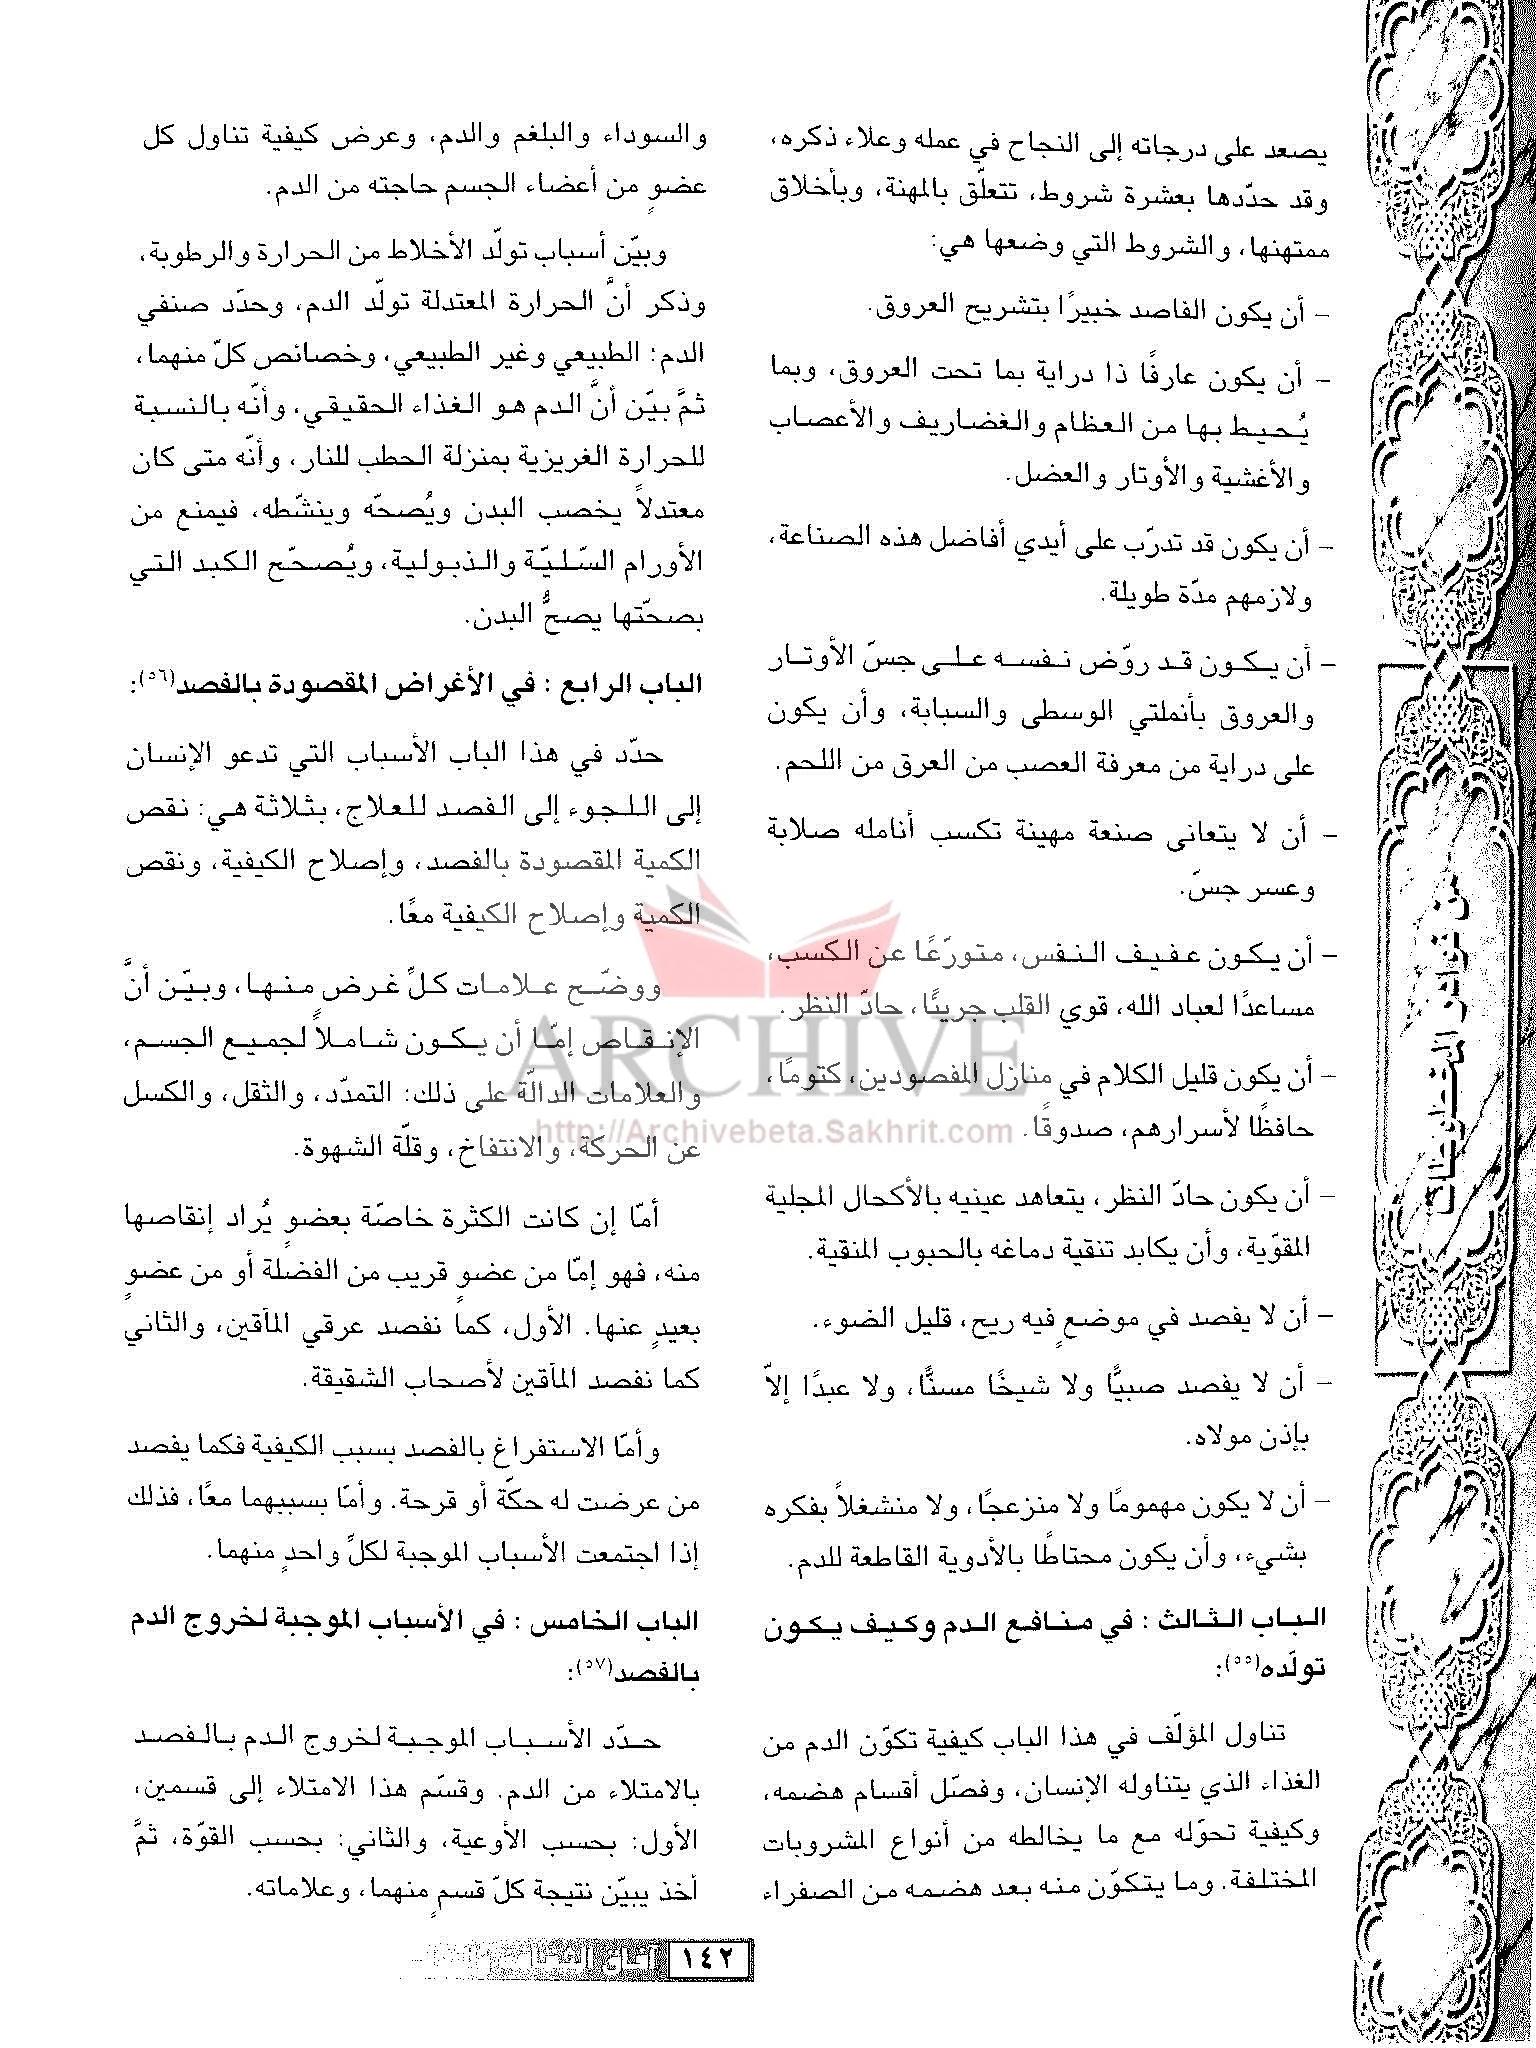 يصعد على درجاته إلى النجاح في عمله وعلاء ذكره،
وقد حدّدها بعشرة شروط، تتعلّق بالمهنة، وبأخلاق
ممتهنها، والشروط التي وضعها هي:
- أن يكون الفاصد خبيرًا بتشريح العروق.
- أن يكون عارفًا ذا دراية بما تحت العروق، وبما
يُحيط بها من العظام والغضاريف والأعصاب
والأغشية والأوتار والعضل.
- أن يكون قد تدرّب على أيدي أفاضل هذه الصناعة،
ولازمهم مدّة طويلة.
- أن يكون قد روّض نفسه على جسّ الأوتار
والعروق بأنملتي الوسطى والسبابة، وأن يكون
على دراية من معرفة العصب من العرق من اللحم.
- أن لا يتعانى صنعة مهينة تكسب أنامله صلابة
وعسر جسّ.
- أن يكون عفيف النفس، متورّعًا عن الكسب،
مساعدًا لعباد الله، قوي القلب جريئًا، حادّ النظر.
- أن يكون قليل الكلام في منازل المفصودين، كتومًا،
حافظًا لأسرارهم، صدوقًا.
- أن يكون حادّ النظر، يتعاهد عينيه بالأكحال المجلية
المقوّية، وأن يكابد تنقية دماغه بالحبوب المنقية.
- أن لا يفصد في موضعٍ فيه ريح، قليل الضوء.
- أن لا يفصد صبيًّا ولا شيخًا مسنًّا، ولا عبدًا إلاّ
بإذن مولاه.
- أن لا يكون مهمومًا ولا منزعجًا، ولا منشغلاً بفكره
بشيء، وأن يكون محتاطًا بالأدوية القاطعة للدم.
الباب الثالث : في منافع الدم وكيف يكون
تولّده(٥٥):
تناول المؤلّف في هذا الباب كيفية تكوّن الدم من
الغذاء الذي يتناوله الإنسان، وفصّل أقسام هضمه،
وكيفية تحوّله مع ما يخالطه من أنواع المشروبات
المختلفة. وما يتكوّن منه بعد هضمه من الصفراء
والسوداء والبلغم والدم، وعرض كيفية تناول كل
عضوٍ من أعضاء الجسم حاجته من الدم.
وبيّن أسباب تولّد الأخلاط من الحرارة والرطوبة،
وذكر أنَّ الحرارة المعتدلة تولّد الدم، وحدّد صنفي
الدم: الطبيعي وغير الطبيعي، وخصائص كلّ منهما،
ثمَّ بيّن أنَّ الدم هو الغذاء الحقيقي، وأنّه بالنسبة
للحرارة الغريزية بمنزلة الحطب للنار، وأنّه متى كان
معتدلاً يخصب البدن ويُصحّه وينشّطه، فيمنع من
الأورام السّليّة والذبولية، ويُصحّح الكبد التي
بصحّتها يصحُّ البدن.
الباب الرابع : في الأغراض المقصودة بالفصد(٥٦):
حدّد في هذا الباب الأسباب التي تدعو الإنسان
إلى اللجوء إلى الفصد للعلاج، بثلاثة هي: نقص
الكمية المقصودة بالفصد، وإصلاح الكيفية، ونقص
الكمية وإصلاح الكيفية معًا.
ووضّح علامات كلِّ غرض منها، وبيّن أنَّ
الإنقاص إمّا أن يكون شاملاً لجميع الجسم،
والعلامات الدالّة على ذلك: التمدّد، والثقل، والكسل
عن الحركة، والانتفاخ، وقلّة الشهوة.
أمّا إن كانت الكثرة خاصّة بعضوٍ يُراد إنقاصها
منه، فهو إمّا من عضوٍ قريب من الفضلة أو من عضوٍ
بعيدٍ عنها. الأول، كما نفصد عرقي المآقين، والثاني
كما نفصد المآقين لأصحاب الشقيقة.
وأمّا الاستفراغ بالفصد بسبب الكيفية فكما يفصد
من عرضت له حكّة أو قرحة. وأمّا بسببهما معًا، فذلك
إذا اجتمعت الأسباب الموجبة لكلِّ واحدٍ منهما.
الباب الخامس : في الأسباب الموجبة لخروج الدم
بالفصد(٥٧):
حدّد الأسباب الموجبة لخروج الدم بالفصد
بالامتلاء من الدم. وقسّم هذا الامتلاء إلى قسمين،
الأول: بحسب الأوعية، والثاني: بحسب القوّة، ثمَّ
أخذ يبيّن نتيجة كلّ قسمٍ منهما، وعلاماته.
ARCHIVE
http://Archivebeta.Sakhrit.com
١٤٢